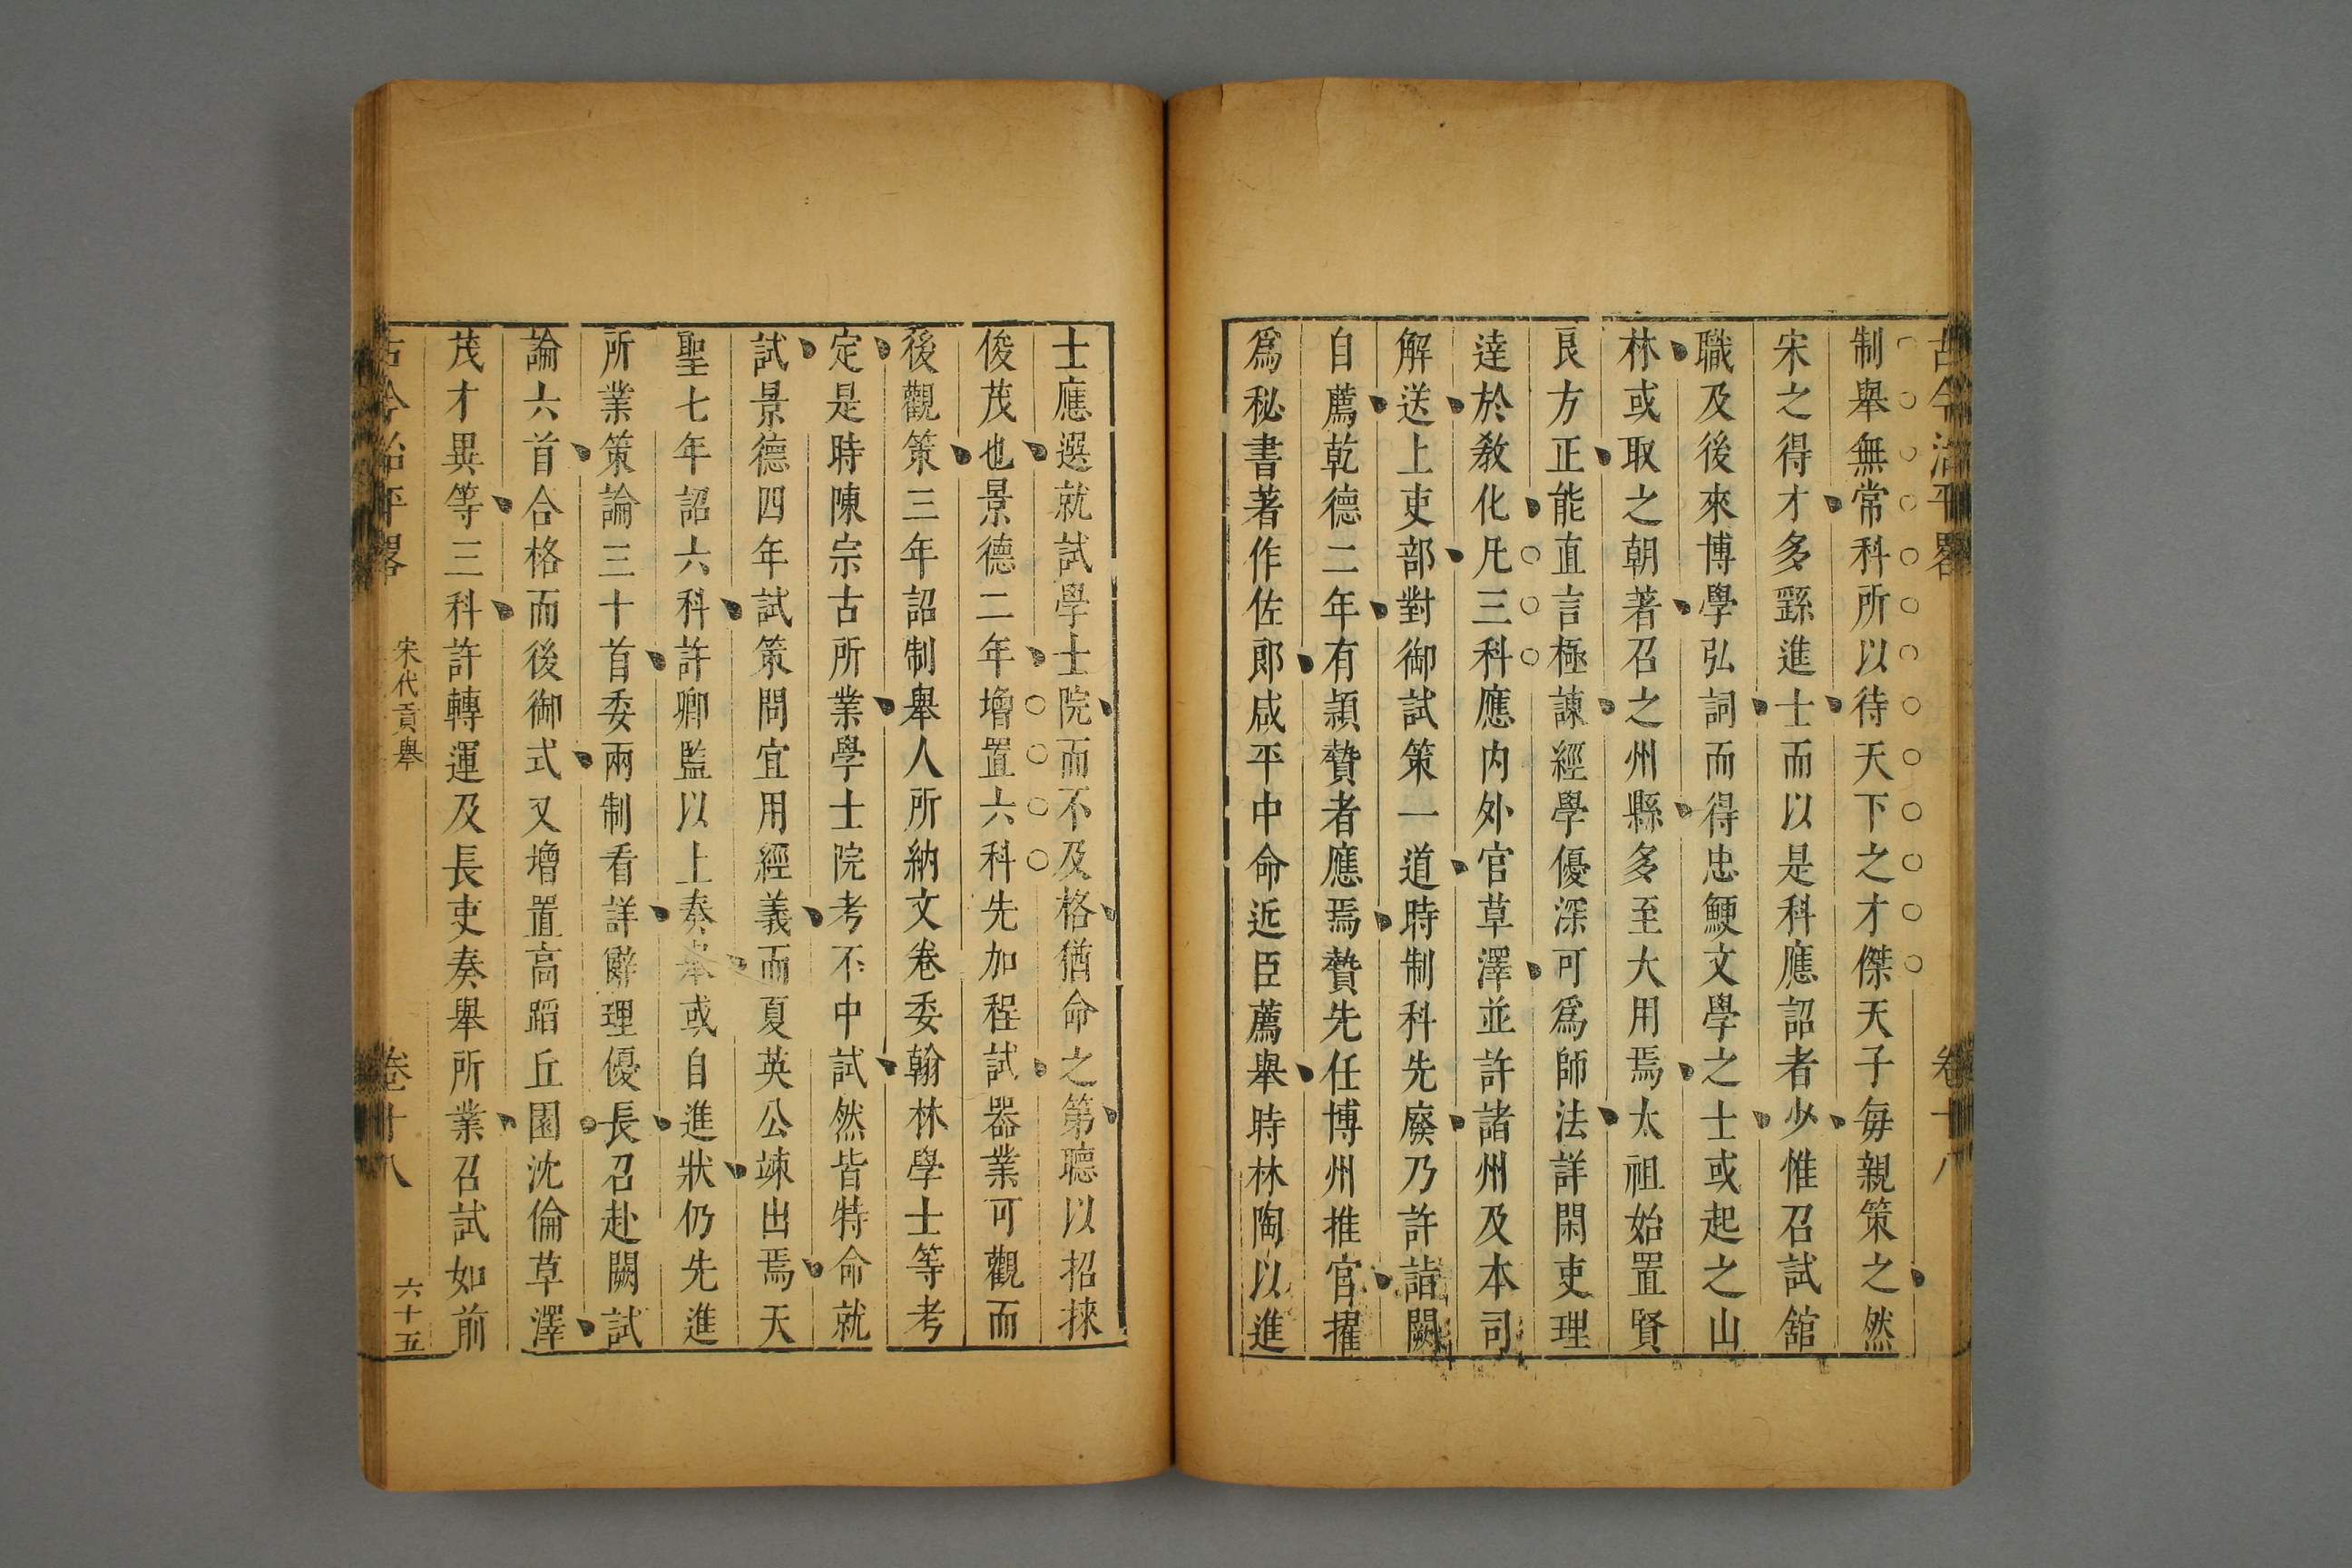 古今治平畧 卷十八
制舉無常科所以待天下之才傑天子每親策之然
宋之得才多繇進士而以是科應詔者少惟召試舘
職及後來博學弘詞而得忠鯁文學之士或起之山
林或取之朝著召之州縣多至大用焉太祖始置賢
良方正能直言極諫經學優深可爲師法詳閑吏理
達於敎化凡三科應内外官草澤並許諸州及本司
解送上吏部對御試策一道時制科先廢乃許詣闕
自薦乾德二年有頴贄者應焉贄先任博州推官擢
爲秘書著作佐郎咸平中命近臣薦舉時林陶以進
士應選就試學士院而不及格猶命之第聽以招徠
俊茂也景德二年增置六科先加程試器業可觀而
後觀策三年詔制舉人所納文卷委翰林學士等考
定是時陳宗古所業學士院考不中試然皆特命就
試景德四年試策問宜用經義而夏英公竦出焉天
聖七年詔六科許卿監以上奏舉或自進狀仍先進
所業策論三十首委兩制看詳辭理優長召赴闕試
論六首合格而後御式又增置高蹈丘園沈倫草澤
茂才異等三科許轉運及長吏奏舉所業召試如前
古今治平畧 宋代貢舉 卷十八 六十五